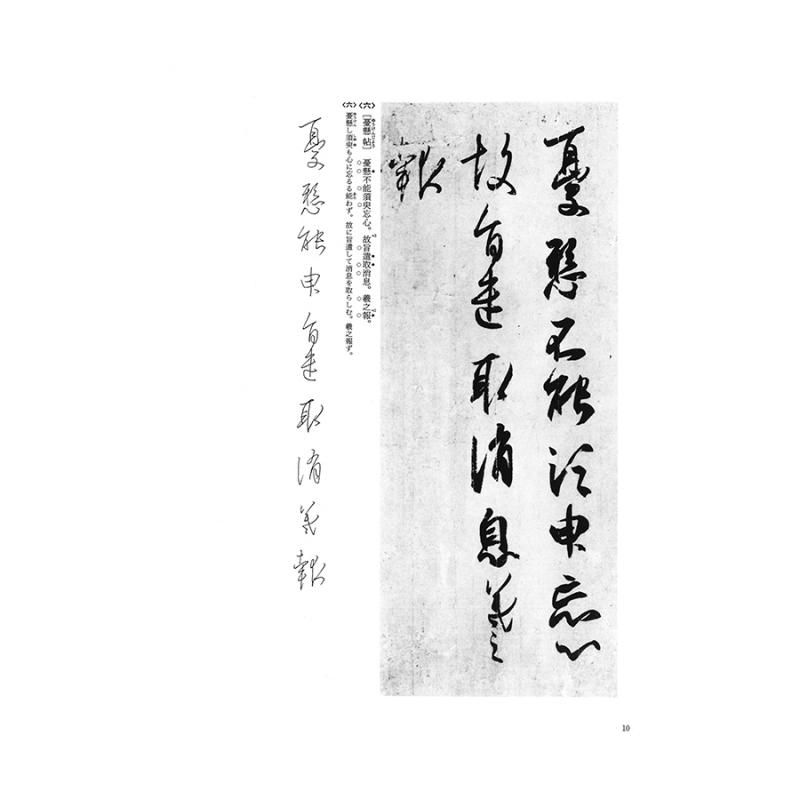 憂懸不能須臾忘心
故旨遣取消息羲之
報
〈六〉
[憂懸帖] 憂懸不能須臾忘心。故旨遣取消息。羲之報。
〈六〉
憂懸し須臾も心に忘るる能わず。故に旨遣して消息を取らしむ。羲之報ず。
憂懸能申旨遣取消羲報
10